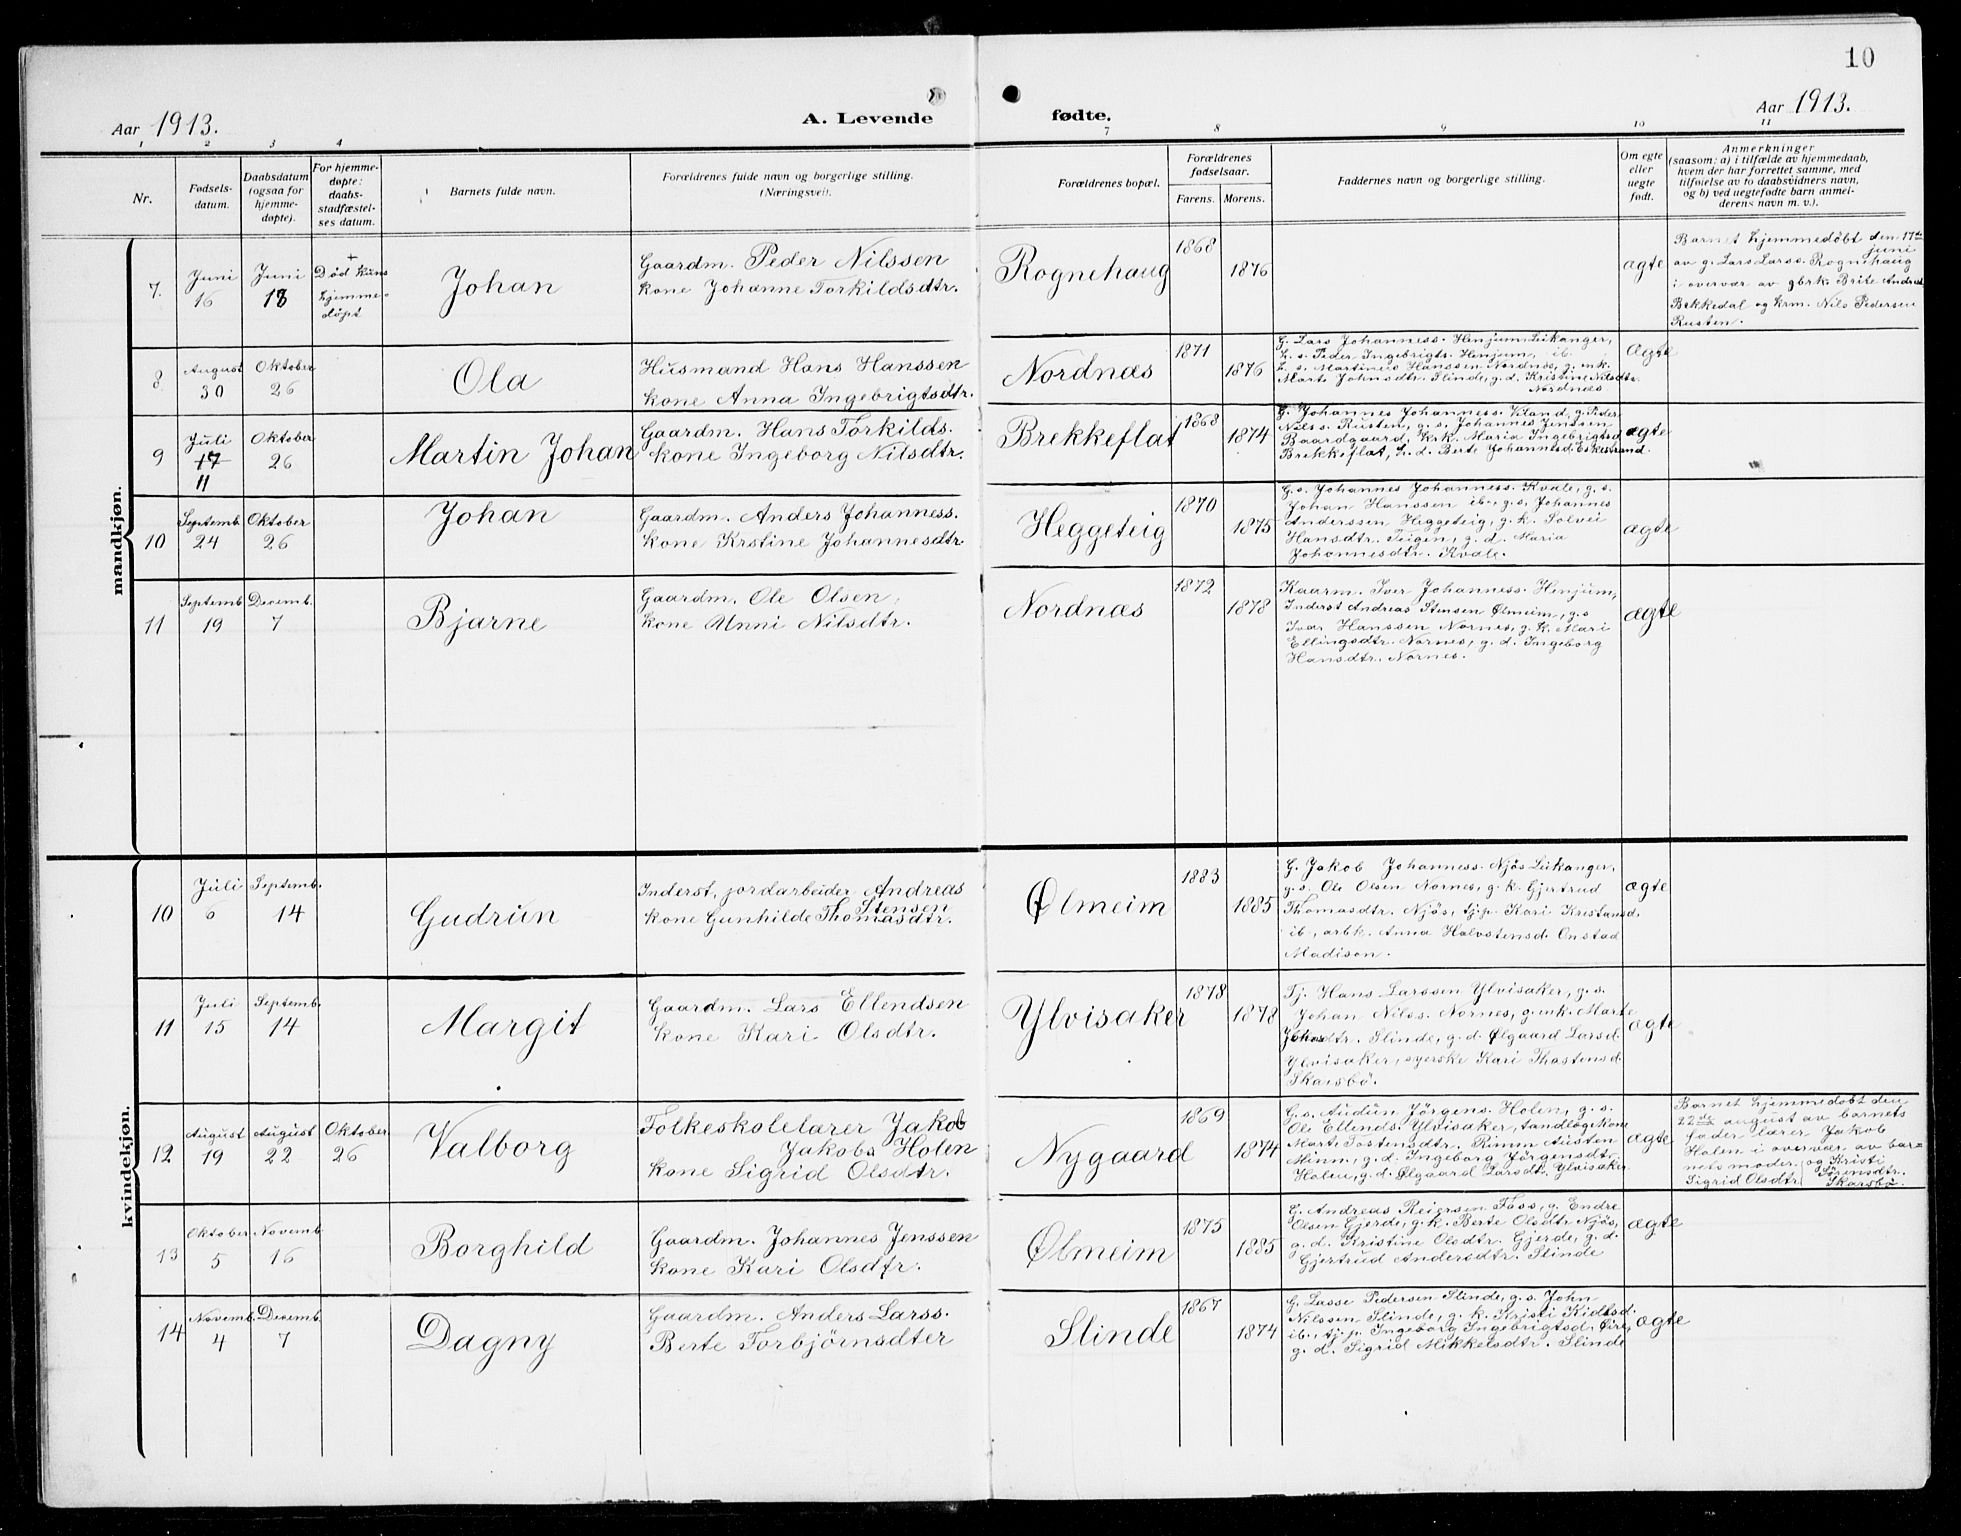 10
Aar 1913.
A. Levende fødte.
Aar 1913.
1 2 3 4 7 8 9 10 11
Nr.
Fødsels-
datum.
Daabsdatum
(ogsaa for
hjemme-
døpte).
For hjemme-
døpte:
daabs-
stadfæstel-
ses datum.
Barnets fulde navn.
Forældrenes fulde navn og borgerlige stilling.
(Næringsvei).
Forældrenes bopæl.
Forældrenes
fødselsaar.
Farens. Morens.
Faddernes navn og borgerlige stilling.
Om egte
eller
uegte
født.
Anmerkninger
(saasom: a) i tilfælde av hjemmedaab,
hvem der har forrettet samme, med
tilføielse av to daabsvidners navn,
og b) ved uegtefødte barn anmel-
derens navn m. v.).
mandkjøn.
7.
Juni
16
Juni
18
+
Død kuns
hjemme-
døpt
Johan
Gaardm. Peder Nilssen
kone Johanne Torkildsdtr.
Rognehaug
1868
1876
ægte
Barnet hjemmedøbt den 17de
juni
av g. Lars Larss. Rognehaug
i overvær av gbrk. Brite Andrsd
Bekkedal og krm. Nils Pedersen
Rusten.
8
August
30
Oktober
26
Ola
Husmand Hans Hanssen
kone Anna Ingebrigtsdtr.
Nordnæs
1871
1876
G. Lars Johanness. Henjum, Leikanger,
h. s. Peder Ingebrigtr. Henjum, ib.
h. s. Martinus Hanssen Nordnæs, g. enk.
Marte Johnsdtr. Slinde, g. d. Kristine Nilsdtr.
Nordnæs
Ægte
9
Juli
17
11
Oktober
26
Martin Johan
Gaardm. Hans Torkilds.
kone Ingeborg Nilsdtr.
Brekkeflat
1868
1874
G. Johannes Johanness. Kland, g. Peder
Nilss. Rusten, g. s. Johannes Jenssen
Baardgaard, krk. Maria Ingebrigtsd
Brekkeflat, h. d. Berte Johannesd. Eskestrand.
ægte
10
Septemb.
24
Oktober
26
Johan
Gaardm. Anders Johanness.
kone Krstine Johannesdtr.
Heggeteig
1870
1875
G. s. Johannes Johanness. Kvale, g. s.
Johan Hanssen ib., g. s. Johannes
Anderssen Heggeteig, g. k. Solvei
Hansdtr. Teigen, g. d. Maria
Johannesdtr. Kvale.
ægte
11
Septemb.
19
Decemb.
7
Bjarne
Gaardm. Ole Olsen,
kone Unni Nilsdtr.
Nordnæs
1872
1878
Kaarm. Iver Johanness. Henjum,
Inderst Andreas Stensen Ølmeim, g. s
Ivar Hanssen Nornes, g. k. Mari
Ellingsdtr. Nornes, g. d. Ingeborg
Hansdtr. Nornes.
ægte
kvindekjøn.
10
Juli
6
Septemb.
14
Gudrun
Inderst, jordarbeider Andreas
Stensen
kone Gunhilde Thomasdtr.
Ølmeim
1883
1885
G. Jakob Johanness. Njøs Leikanger,
g. s. Ole Olsen Nornes, g. k. Gjertrud
Thomasdtr. Njøs, tj.p. Kari Kristansd.
ib., arbk. Anna Halvstensd. Onstad
Madison.
ægte
11
Juli
15
Septemb.
14
Margit
Gaardm. Lars Ellendsen
kone Kari Olsdtr.
Ylvisaker
1878
1878
Tj. Hans Larssen Ylvisaker, g. s.
Johan Nilss. Nornes, g. enk. Marte
Johnsdtr. Slinde, g. d. Ølgaard Larsd.
Ylvisaker, syerske Kari Thostensd.
Skarsbø.
ægte
12
August
19
August
22
Oktober
26
Valborg
Folkeskolelærer Jakob
Jakobs Holen
kone Sigrid Olsdtr.
Nygaard
1869
1874
G. s. Audun Jörgens. Holen, g. s.
Ole Ellends. Ylvisaker, tandlögekone
Marte Tostensdtr. Rimm Austen
Minn, g. d. Ingeborg Jörgensdtr.
Holen, g. d. Ølgaard Larsdt. Ylvisaker
ægte
Barnet hjemmedøbt den
22de august av barnets
fader lærer Jakob
Holen i overvær av bar=
nets moder og Kristi
Sigrid Olsdtr. Sørensdtr.
Skarsbø.
13
Oktober
5
Novemb
16
Borghild
Gaardm. Johannes Jenssen
kone Kari Olsdtr.
Ølmeim
1875
1885
G. Andreas Reiersen Foss, g. Endre
Olsen Gjerde, g. k. Berte Olsdtr Njøs,
g. d. Kristine Olsdtr. Gjerde, g. d.
Gjertrud Andersdtr. Slinde
ægte
14
Novemb.
4
Decemb.
7
Dagny
Gaardm. Anders Larss.
Berte Torbjörnsdter
Slinde
1867
1874
G. Lasse Pedersen Slinde, g. s. John
Nilssen Slinde, g. k. Kristi Kidlsd.
ib., tj. p. Ingeborg Ingebrigtsd. Øire,
g. d. Sigrid Mikkelsdtr. Slinde
ægte